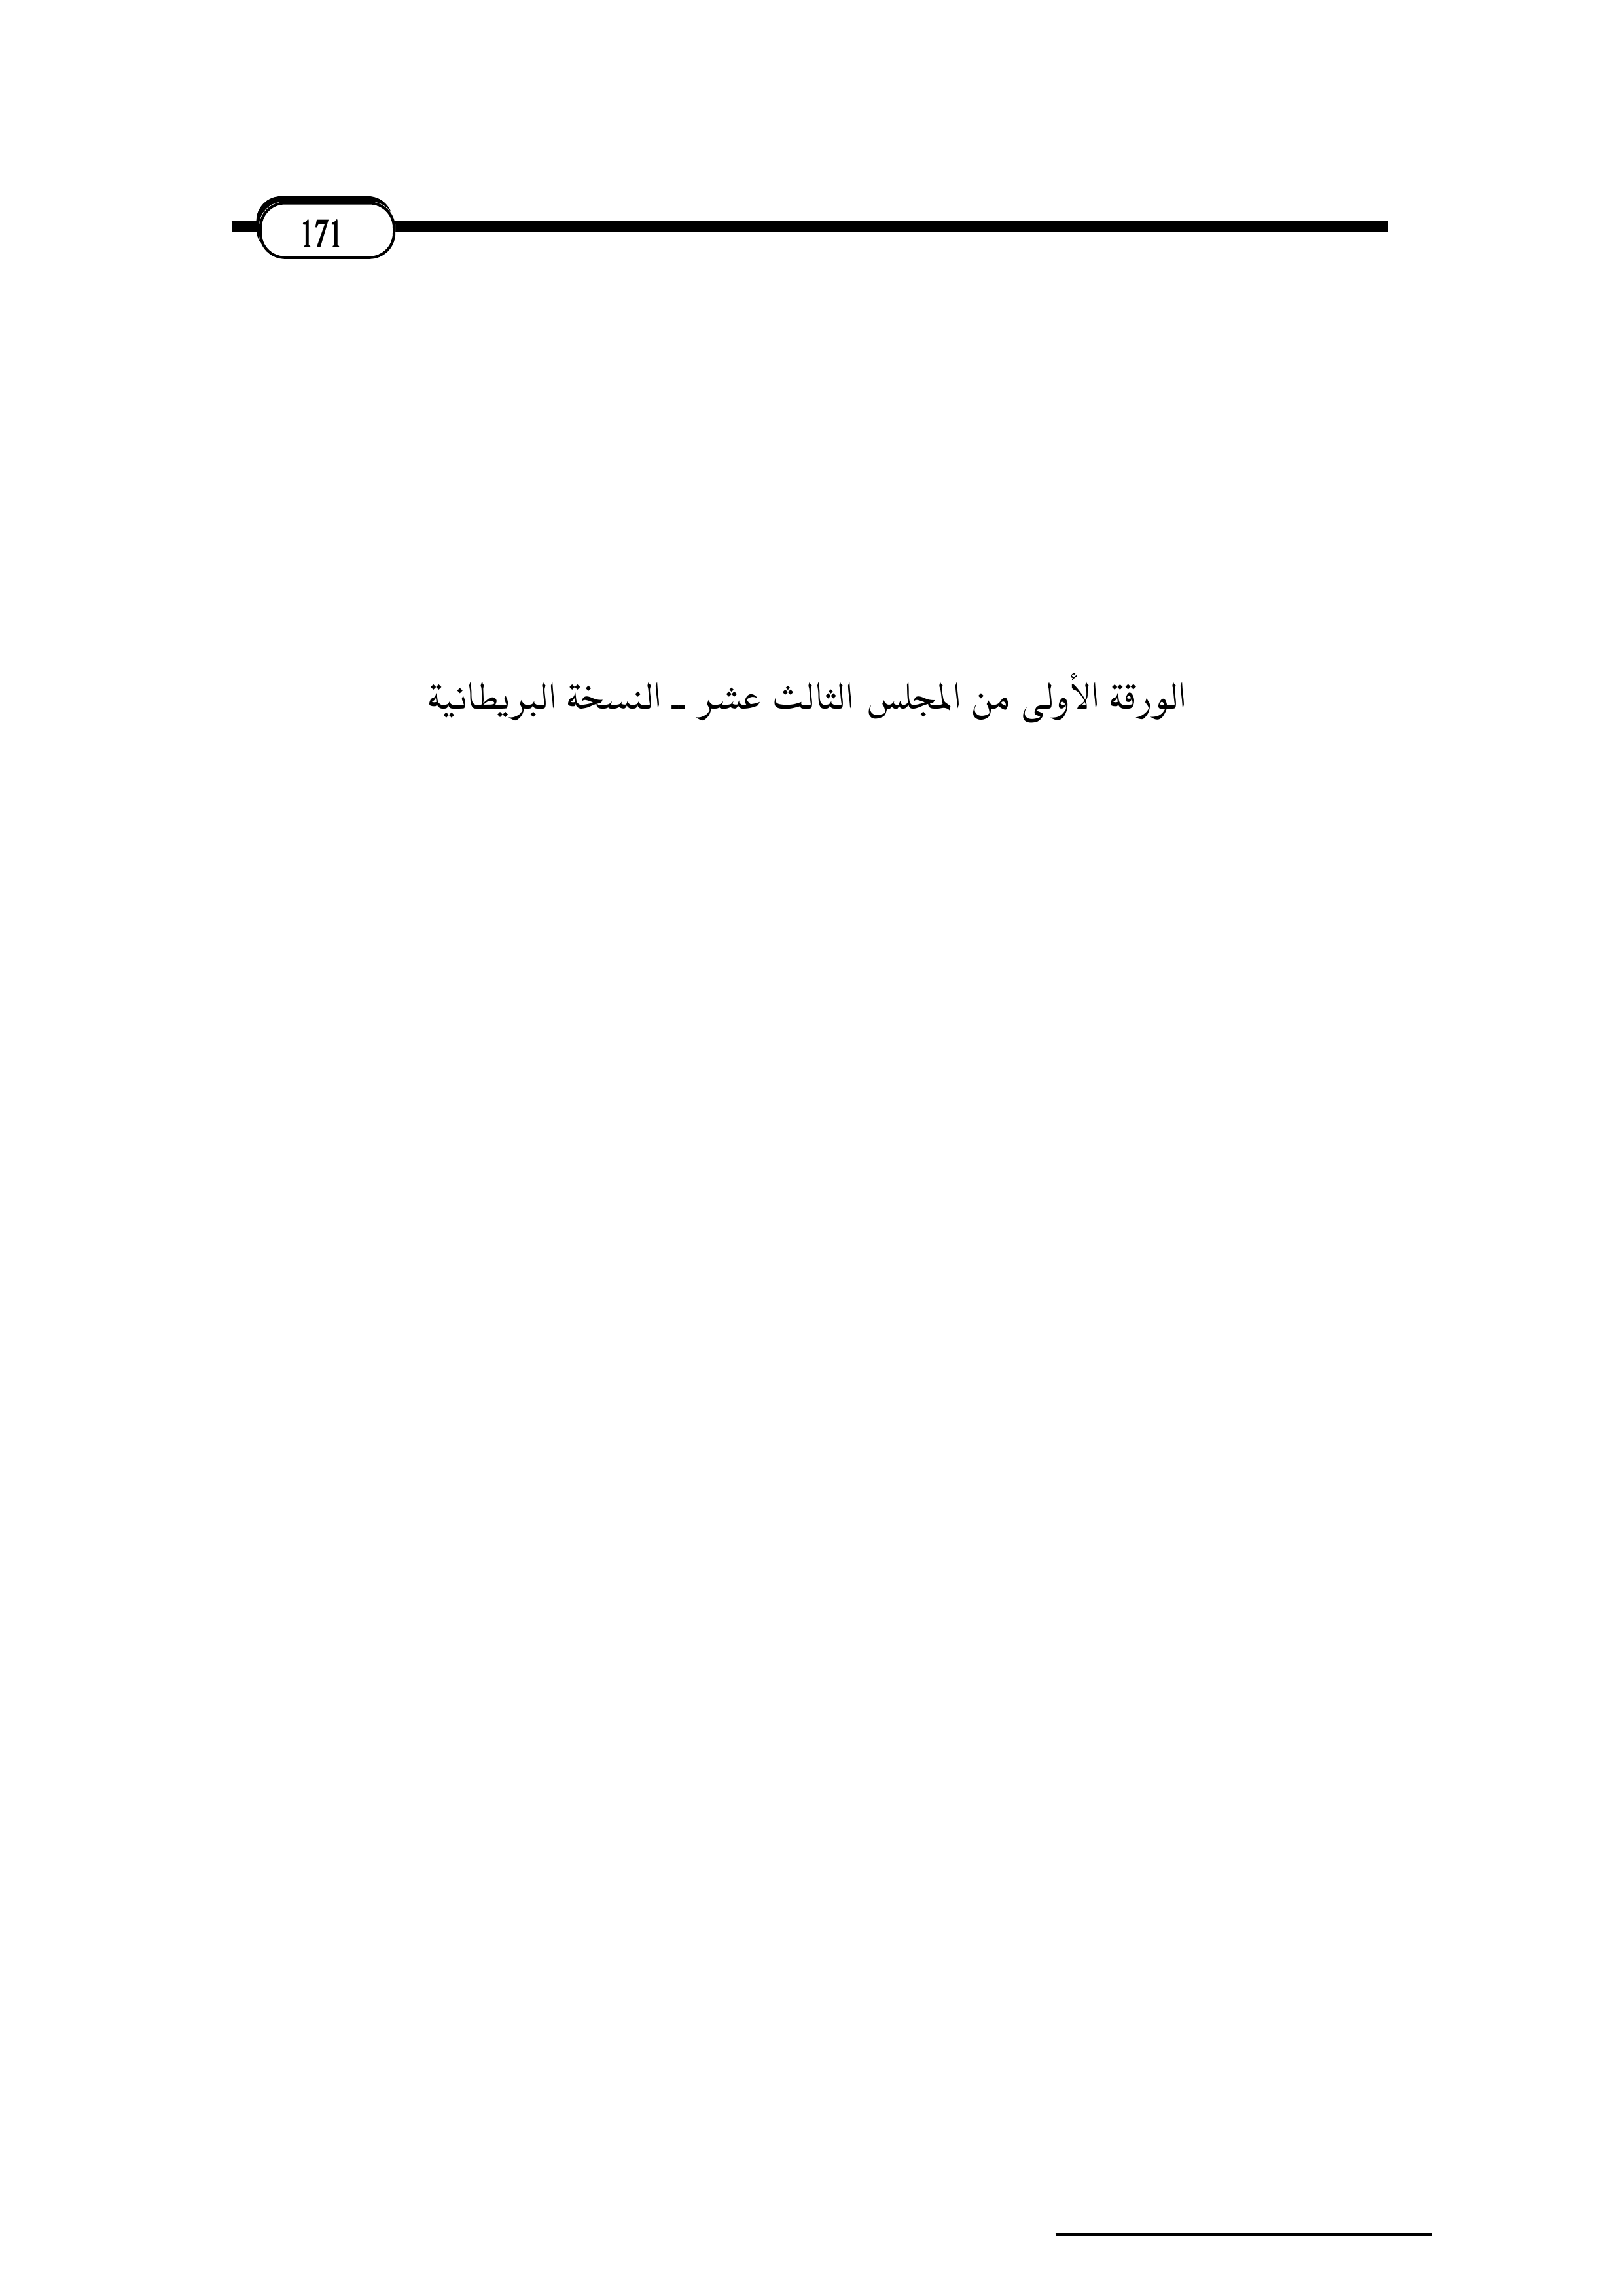 171
الورقة الأولى من المجلس الثالث عشر ـ النسخة البريطانية